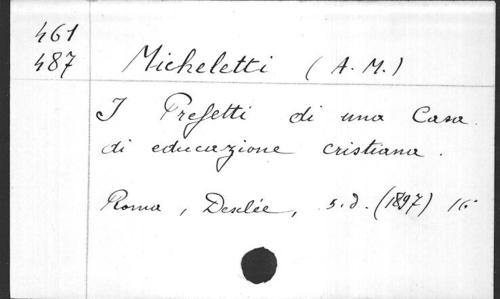 461
487
Micheletti (A. M.)
I Prefetti di una Casa
di educazione cristiana.
Roma, Desclée, s.d. (1897) 16°